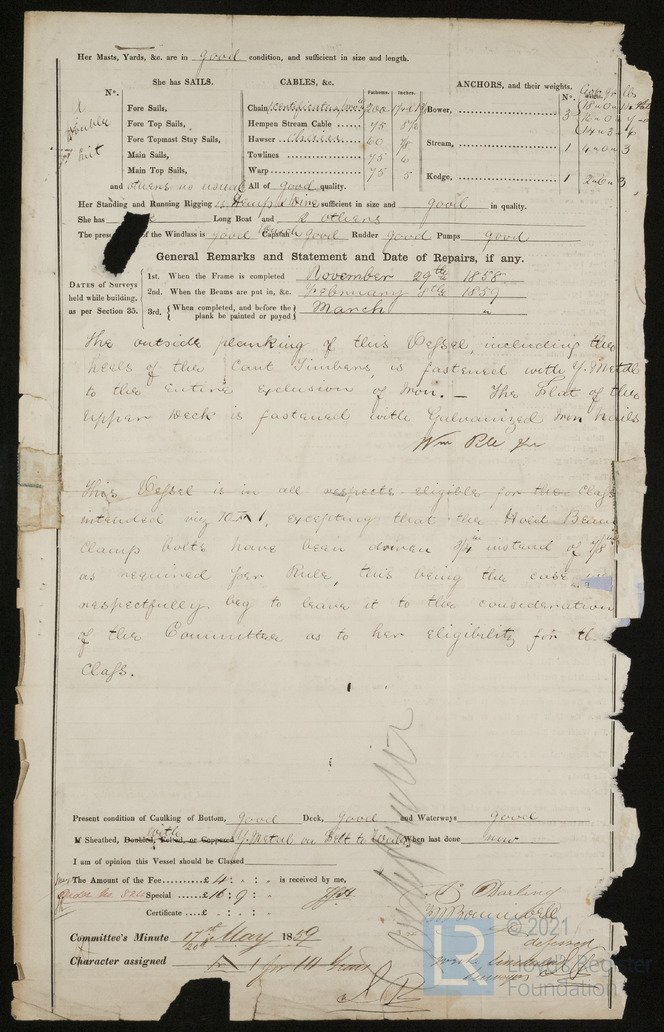 Her Masts, Yards, &c. are in good condition, and sufficient in size and length.
She has SAILS.
CABLES, &c.
ANCHORS, and their weights.
N°.
Fathoms.
Inches.
N°.
Fore Sails,
Chain
Bower, 3
Fore Top Sails,
Hempen Stream Cable 75 8½
Fore Topmast Stay Sails,
Hawser 60 7/8
Stream, 1 4 " 0 " 3
Main Sails,
Towlines 75 6
Main Top Sails,
Warp 75 5
Kedge, 1 2 " 0 " 3
and others as usual All of good quality.
Her Standing and Running Rigging is Hemp & Wire sufficient in size and good in quality.
She has Long Boat and 2 others
The pres of the Windlass is good Capstan good Rudder good Pumps good
General Remarks and Statement and Date of Repairs, if any.
DATES of Surveys held while building, as per Section 35.
1st. When the Frame is completed November 29th 1858
2nd. When the Beams are put in, &c. February 4th 1859
3rd. When completed, and before the plank be painted or payed March "
The outside planking of this Vessel, including the
heels of the Cant Timbers, is fastened with Y. Metal
to the entire exclusion of Iron. — The Flat of the
Upper Deck is fastened with Galvanized Iron Nails
Wm Pile Jnr
This Vessel is in all respects eligible for the Class
intended viz 10 A 1, excepting that the Hold Beam
Clamp bolts have been driven 3/4 ins instead of 7/8 ins
as required per Rule, this being the case
respectfully beg to leave it to the consideration
of the Committee as to her eligibility for th
Class.
Present condition of Caulking of Bottom, good Deck, good and Waterways good
If Sheathed, Doubled, Felted, or Coppered with Y. Metal on Felt to Wales When last done new
I am of opinion this Vessel should be Classed
The Amount of the Fee £ 4 : " : " is received by me,
Special £ 16 : 9 : "
Certificate £ : :
Committee's Minute 17th May 1859
Character assigned A 1 for 10 Years
As Darling
© 2021
Lloyd's Register
Foundation
LR